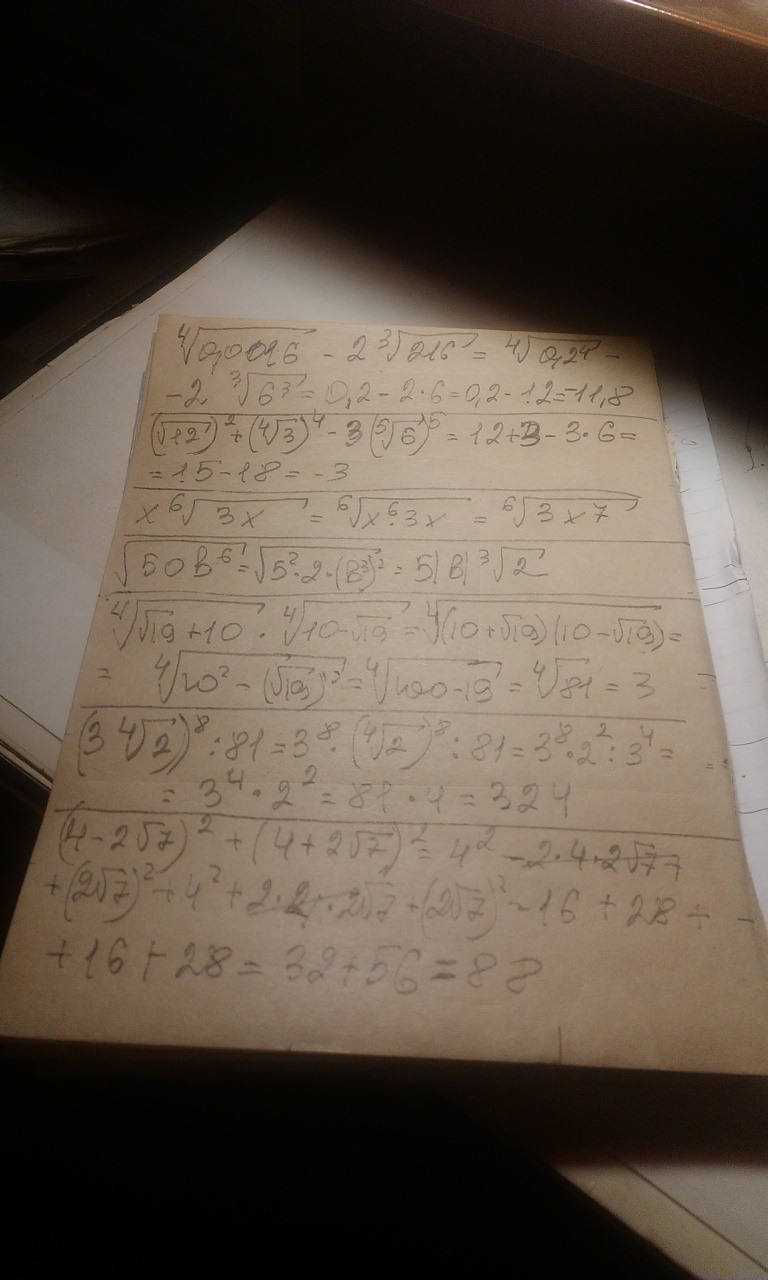 ⁴√0,0016 - 2 ³√216 = ⁴√0,2⁴ -
- 2 ³√6³ = 0,2 - 2·6 = 0,2 - 12 = -11,8
(√12)² + (⁴√3)⁴ - 3(⁵√6)⁵ = 12 + 3 - 3·6 =
= 15 - 18 = -3
x ⁶√3x = ⁶√x⁶·3x = ⁶√3x⁷
√50B⁶ = √5²·2·(B³)² = 5|B|³√2
⁴√√19+10 · ⁴√10-√19 = ⁴√(10+√19)(10-√19) =
= ⁴√10² - (√19)² = ⁴√100-19 = ⁴√81 = 3
(3 ⁴√2)⁸ : 81 = 3⁸ · (⁴√2)⁸ : 81 = 3⁸·2² : 3⁴ =
= 3⁴·2² = 81·4 = 324
(4-2√7)² + (4+2√7)² = 4² - 2·4·2√7 +
+ (2√7)² + 4² + 2·4·2√7 + (2√7)² = 16 + 28 +
+ 16 + 28 = 32 + 56 = 88